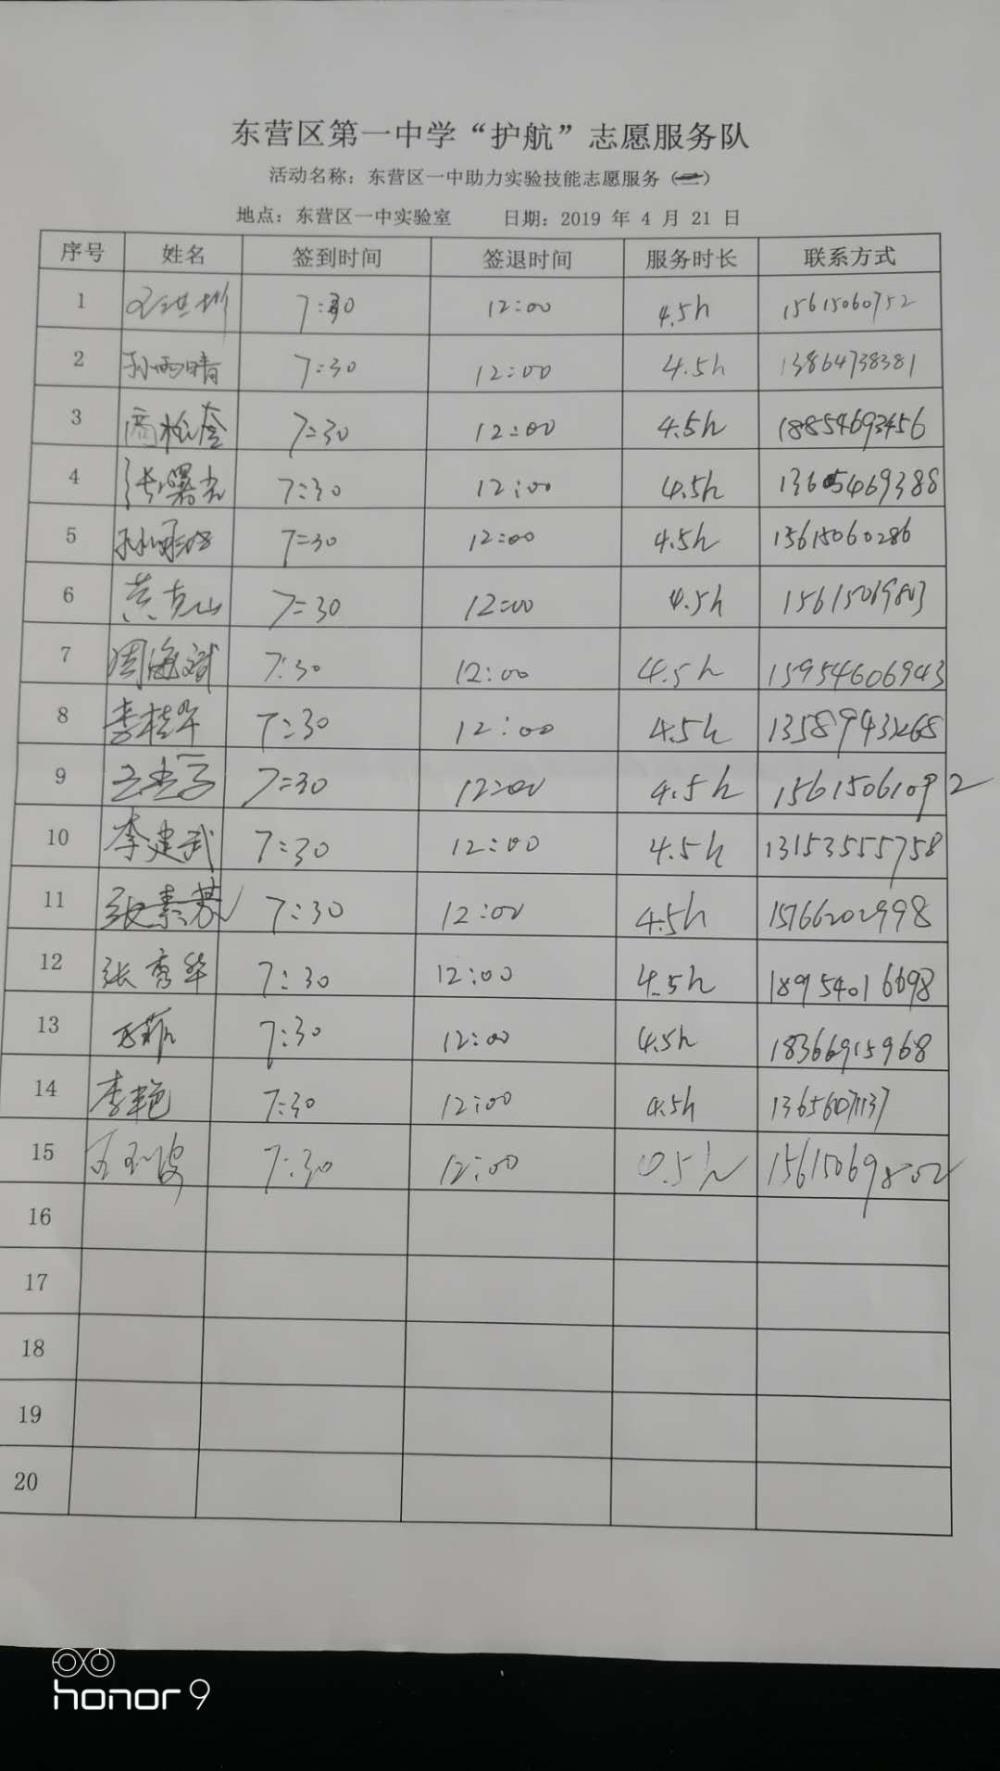 东营区第一中学“护航”志愿服务队
活动名称：东营区一中助力实验技能志愿服务（二）
地点：东营区一中实验室 日期：2019 年 4 月 21 日
序号 姓名 签到时间 签退时间 服务时长 联系方式
1 7:30 12:00 4.5h 15615060752
2 孙雨晴 7:30 12:00 4.5h 13864738381
3 商松奎 7:30 12:00 4.5h 18854693456
4 张曙光 7:30 12:00 4.5h 13605469388
5 7:30 12:00 4.5h 15615060286
6 黄克山 7:30 12:00 4.5h 15615069803
7 周海斌 7:30 12:00 4.5h 15954606943
8 李桂华 7:30 12:00 4.5h 13589943268
9 7:30 12:00 4.5h 15615061092
10 李建武 7:30 12:00 4.5h 13153555758
11 张素芬 7:30 12:00 4.5h 15766202998
12 张秀华 7:30 12:00 4.5h 18954016698
13 7:30 12:00 4.5h 18366915968
14 李艳 7:30 12:00 4.5h 13656071137
15 7:30 12:00 0.5h 15615069802
16
17
18
19
20
honor 9